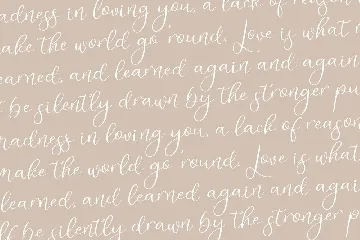 madness in loving you, a lack of reason
make the world go round. Love is what m
earned, and learned again and again
t be silently drawn by the stronger pu
madness in loving you, a lack of reason
make the world go round. Love is what
learned, and learned again and aga
lf be silently drawn by the stronger p